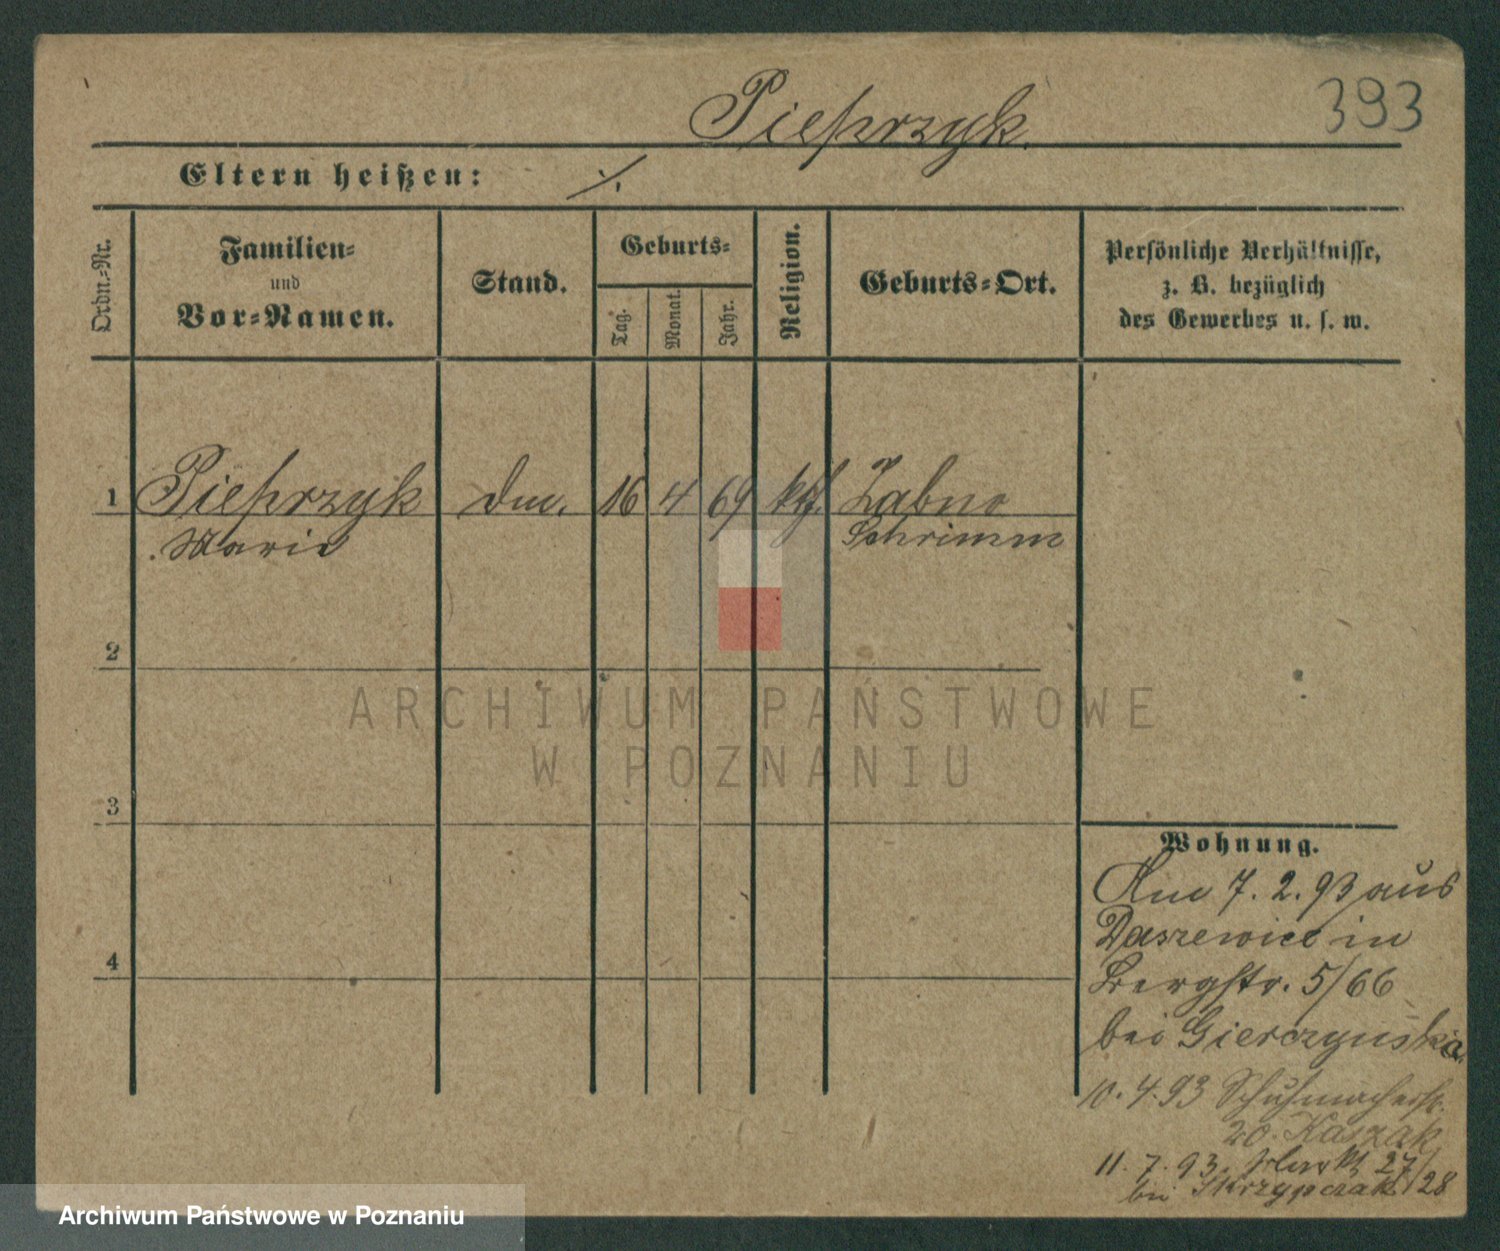 Pieprzyk.
393
Eltern heißen: ./.
Ordn.-Nr.
Familien-
und
Vor-Namen.
Stand.
Geburts-
Tag.
Monat.
Jahr.
Religion.
Geburts-Ort.
Persönliche Verhältnisse,
z. B. bezüglich
des Gewerbes u. s. w.
1 Pieprzyk 16 4 69 kth. Zabno
Marie Schrimm
2
3
4
Wohnung.
Am 7. 2. 93 aus
Daszewice in
Bergstr. 5/66
bei Gierczynska.
10. 4. 93 Schuhmacherstr.
20. Kaszak
11. 7. 93. Markt 27/28
bei Skrzypczak
ARCHIWUM PAŃSTWOWE
W POZNANIU
Archiwum Państwowe w Poznaniu